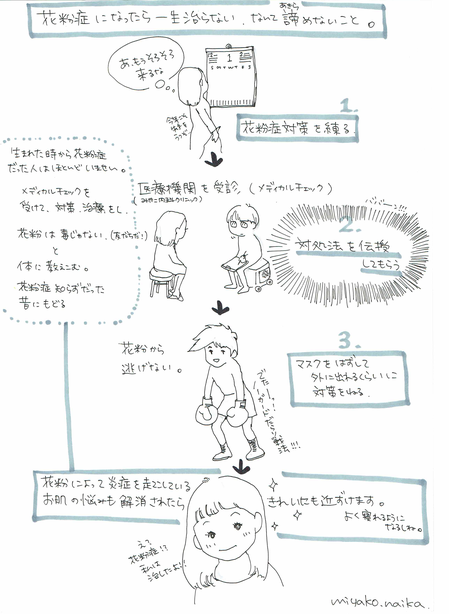 花粉症になったら一生治らない、なんて諦めないこと。
あきら
あ、もうそろそろ
来るな
1
S M T W T F S
1.
花粉症対策を練る
生まれた時から花粉症
だった人はほとんどいません。
メディカルチェックを
受けて、対策、治療をし、
花粉は毒じゃない、(友だちだ!)
と
体に教えこむ。
花粉症知らずだった
昔にもどる
医療機関を受診(メディカルチェック)
(みやこ内科クリニック)
ババーン!!!
2.
対処法を伝授
してもらう
花粉から
逃げない。
3.
マスクをはずして
外に出れるくらいに
対策をねる。
花粉によって炎症を起こしている
お肌の悩みも解消されたら
きれいにも近づけます。
よく寝れるように
なるしね。
え?
花粉症!?
私は
治したよ!
miyako.naika.